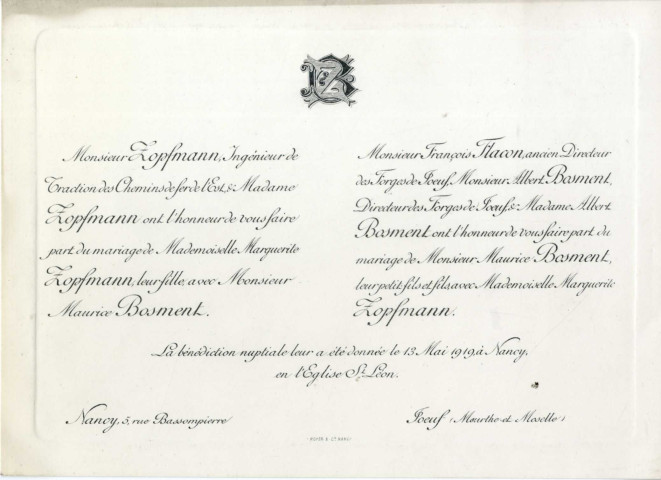 Monsieur Zopfmann, Ingénieur de
Traction des Chemins de fer de l'Est, & Madame
Zopfmann ont l'honneur de vous faire
part du mariage de Mademoiselle Marguerite
Zopfmann, leur fille, avec Monsieur
Maurice Bosment.
Monsieur François Flacon, ancien Directeur
des Forges de Joeuf, Monsieur Albert Bosment,
Directeur des Forges de Joeuf, & Madame Albert
Bosment ont l'honneur de vous faire part du
mariage de Monsieur Maurice Bosment,
leur petit fils et fils avec Mademoiselle Marguerite
Zopfmann.
La bénédiction nuptiale leur a été donnée le 13 Mai 1919, à Nancy,
en l'Eglise St Léon.
Nancy, 5, rue Bassompierre
Joeuf (Meurthe-et-Moselle)